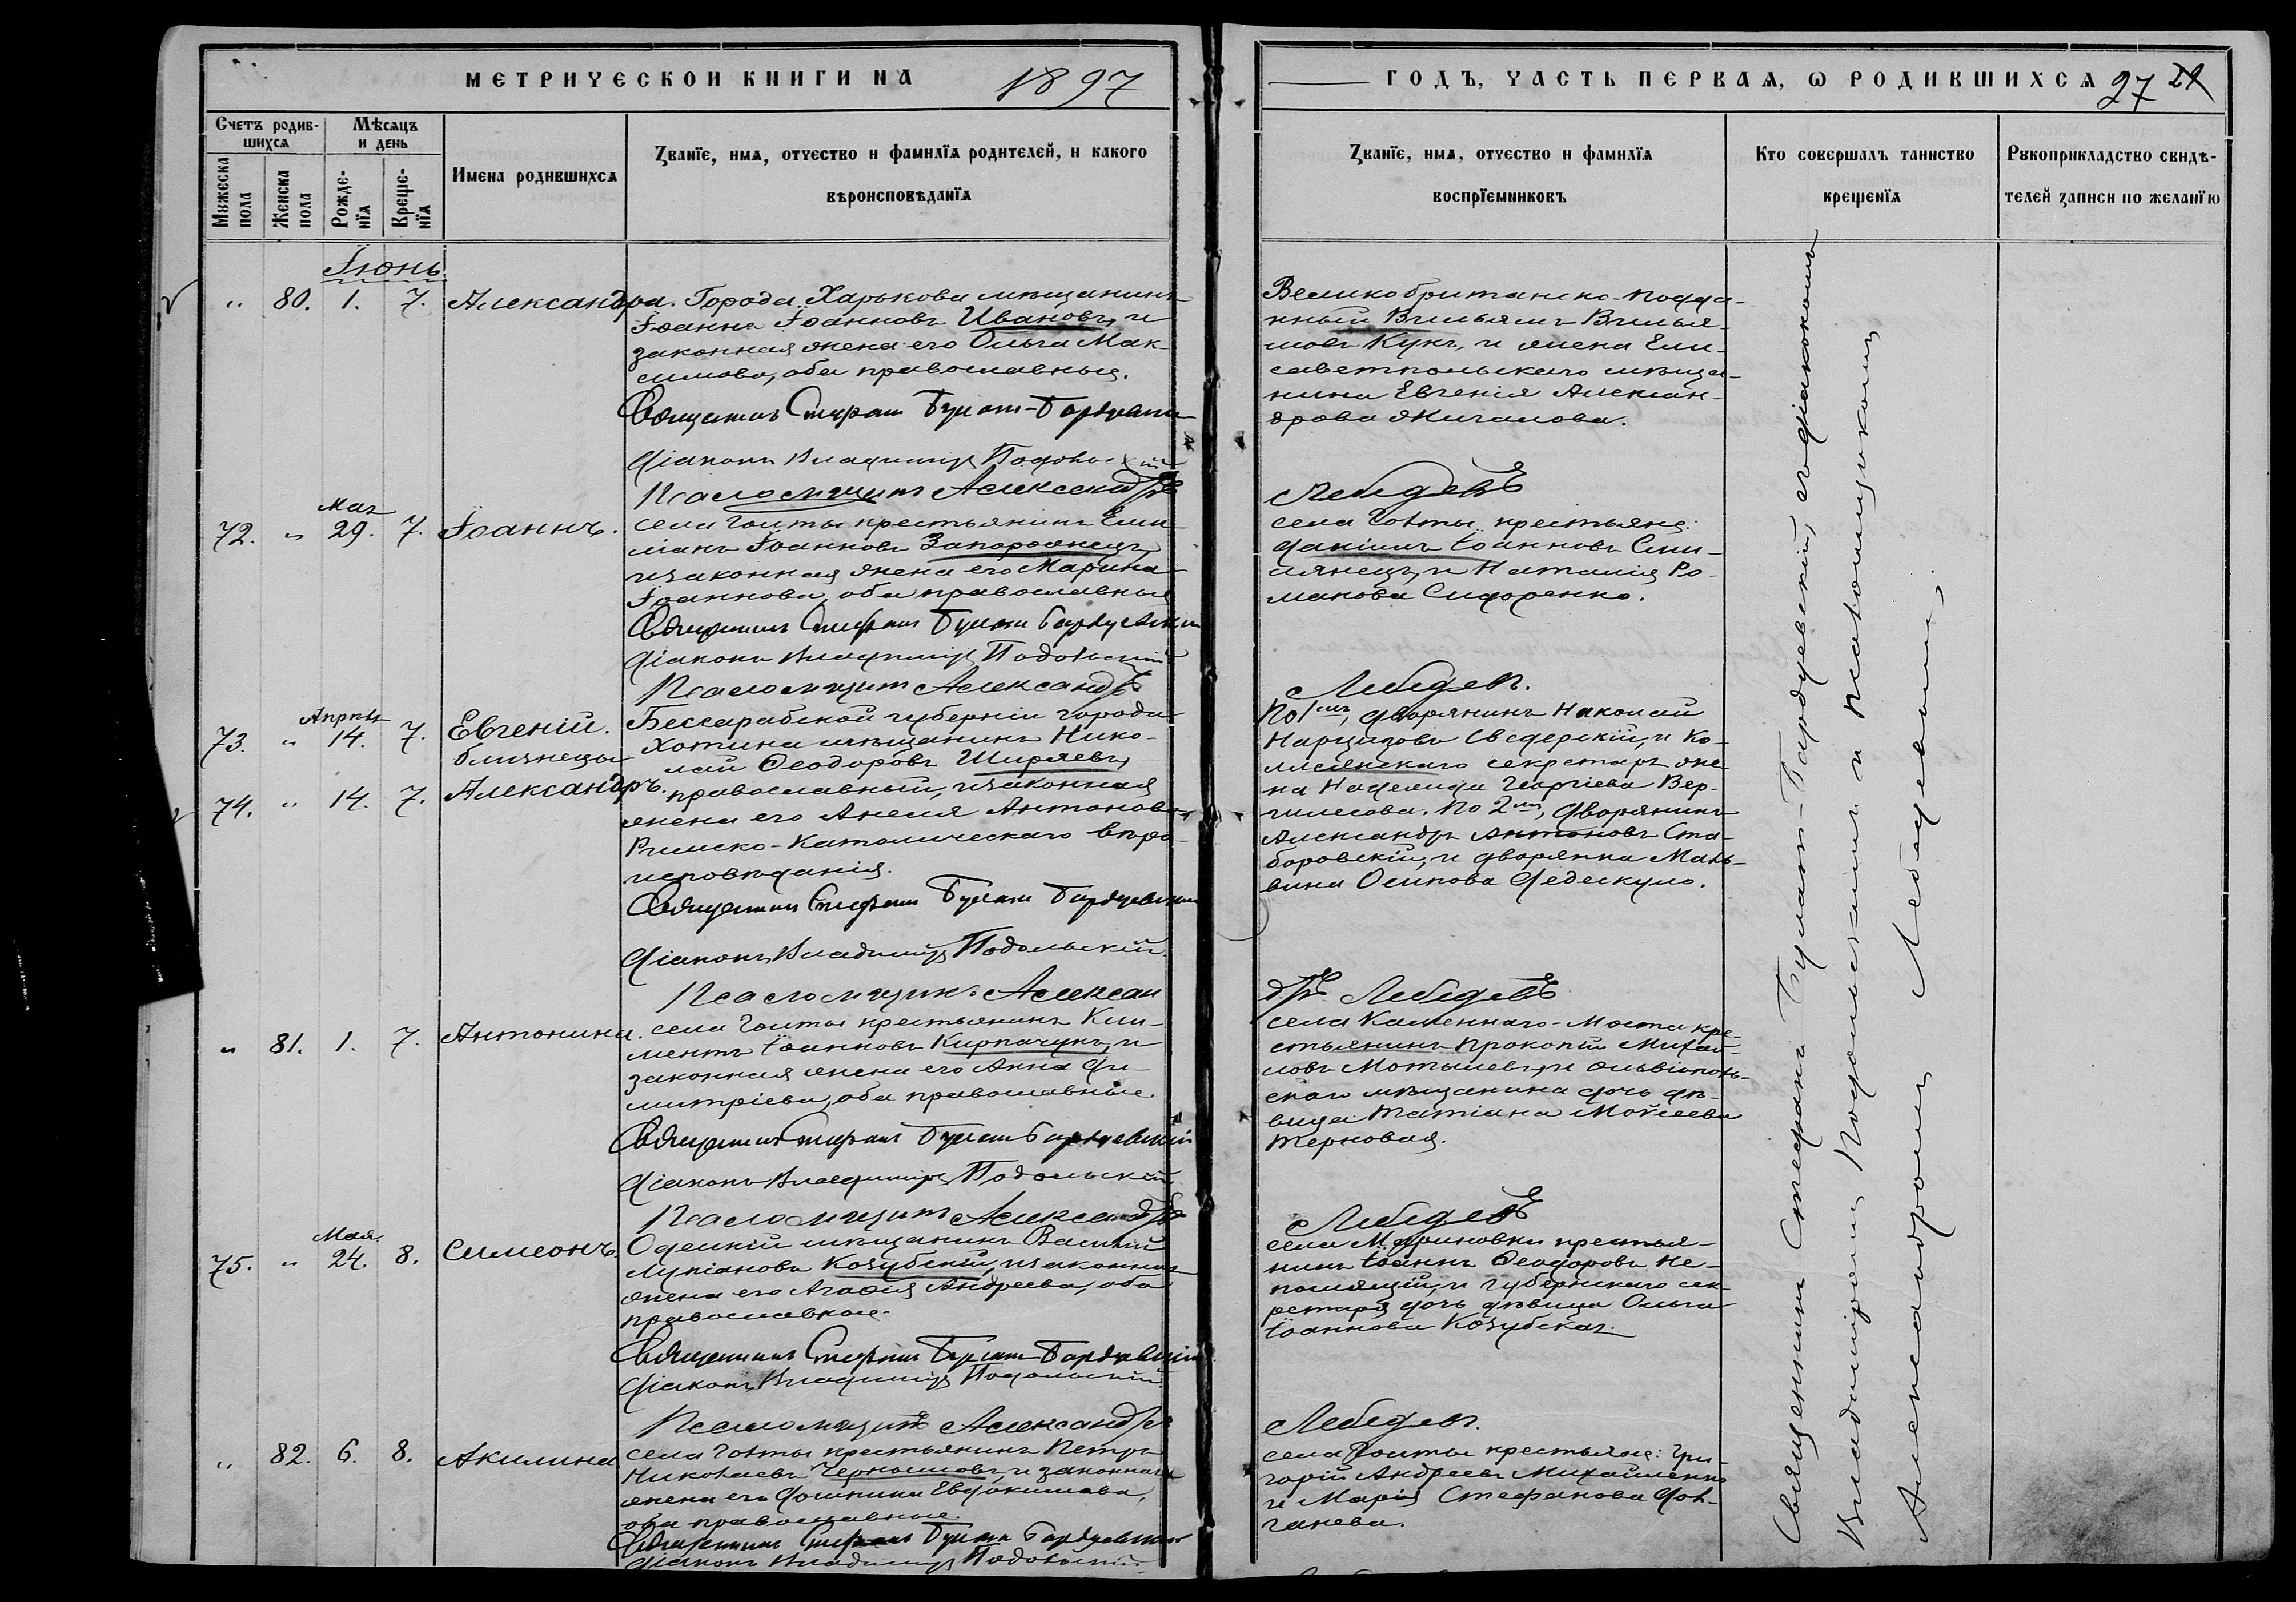 МЕТРИЧЕСКОЙ КНИГИ НА 1897
ГОДЪ, ЧАСТЬ ПЕРВАЯ, Ѡ РОДИВШИХСЯ 27
Счетъ родив-
шихся
Мѣсяцъ
и день
Мужеска
пола
Женска
пола
Рожде-
нїя
Креще-
нїя
Имена родившихся
Званїе, имя, отчество и фамилїя родителей, и какого
вѣроисповѣданїя
Званїе, имя, отчество и фамилїя
воспрїемниковъ
Кто совершалъ таинство
крещенїя
Рукоприкладство свидѣ-
телей записи по желанїю
Іюнь.
„ 80. 1. 7. Александра.
Города Харькова мѣщанинъ
Іоаннъ Іоанновъ Ивановъ, и
законная жена его Ольга Мак-
симова, оба православные.
Священникъ Стефанъ Булатъ-Бардуевскій
Діаконъ Владиміръ Подольскій
Псаломщикъ Александръ
Великобританско-подда-
нный Вильямъ Вилья-
мовъ Кукъ, и жена Ели-
саветпольскаго мѣща-
нина Евгенія Алексан-
дрова Жигалова.
Лебедевъ
Мая
72. „ 29. 7. Іоаннъ.
села Голты крестьянинъ Еми-
ліанъ Іоанновъ Запорожецъ,
и законная жена его Марина
Іоаннова, оба православные
Священникъ Стефанъ Булатъ Бардуевскій
Діаконъ Владиміръ Подольскій
Псаломщикъ Александръ
села Голты крестьяне:
Даніилъ Іоанновъ Сми-
лянецъ, и Наталія Ро-
манова Сидоренко.
Лебедевъ.
Апрѣля
73. „ 14. 7. Евгеній.
близнецы
74. „ 14. 7. Александръ.
Бессарабской губерніи города
Хотина мѣщанинъ Нико-
лай Ѳеодоровъ Ширяевъ,
православный, и законная
жена его Анеля Антонова,
Римско-Католическаго вѣро-
исповѣданія.
Священникъ Стефанъ Булатъ Бардуевскій
Діаконъ Владиміръ Подольскій.
Псаломщикъ Алексан
По 1мъ, дворянинъ Николай
Нарцизовъ Сведерскій, и Ко-
ллежскаго секретаря же-
на Надежда Георгіева Вер-
гилесова. По 2мъ, Дворянинъ
Александръ Антоновъ Ста-
боровскій, и дворянка Маль-
вина Осипова Федескуло.
дръ Лебедевъ
„ 81. 1. 7. Антонина.
села Голты крестьянинъ Кли-
ментъ Іоанновъ Кирпачукъ, и
законная жена его Анна Ди-
митріева, оба православные.
Священникъ Стефанъ Булатъ Бардуевскій
Діаконъ Владиміръ Подольскій
Псаломщикъ Александръ
села Каменнаго-Моста кре-
стьянинъ Прокопій Михай-
ловъ Мотылевъ, и Ольвіополь-
скаго мѣщанина дочь дѣ-
вица Татіана Моѵсеева
Терновая.
Лебедевъ
Мая
75. „ 24. 8. Симеонъ.
Одесскій мѣщанинъ Василій
Лукіановъ Козубскій, и законная
жена его Агаѳія Андреева, оба
православные.
Священникъ Стефанъ Булатъ Бардуевскій
Діаконъ Владиміръ Подольскій
Псаломщикъ Александръ
села Мариновки крестья-
нинъ Іоаннъ Ѳеодоровъ Не-
помящій, и губернскаго сек-
ретаря дочь дѣвица Ольга
Іоаннова Козубская.
Лебедевъ.
„ 82. 6. 8. Акилина
села Голты крестьянинъ Петръ
Николаевъ Чернышовъ, и законная
жена его Домника Евдокимова,
оба православные.
Священникъ Стефанъ Булатъ Бардуевскій
Діаконъ Владиміръ Подольскій.
села Голты крестьяне: Гри-
горій Андреевъ Михайленко
и Марія Стефанова Дол-
ганева.
Священникъ Стефанъ Булатъ-Бардуевскій, съ діакономъ
Владиміромъ Подольскимъ и псаломщикомъ
Александромъ Лебедевымъ.